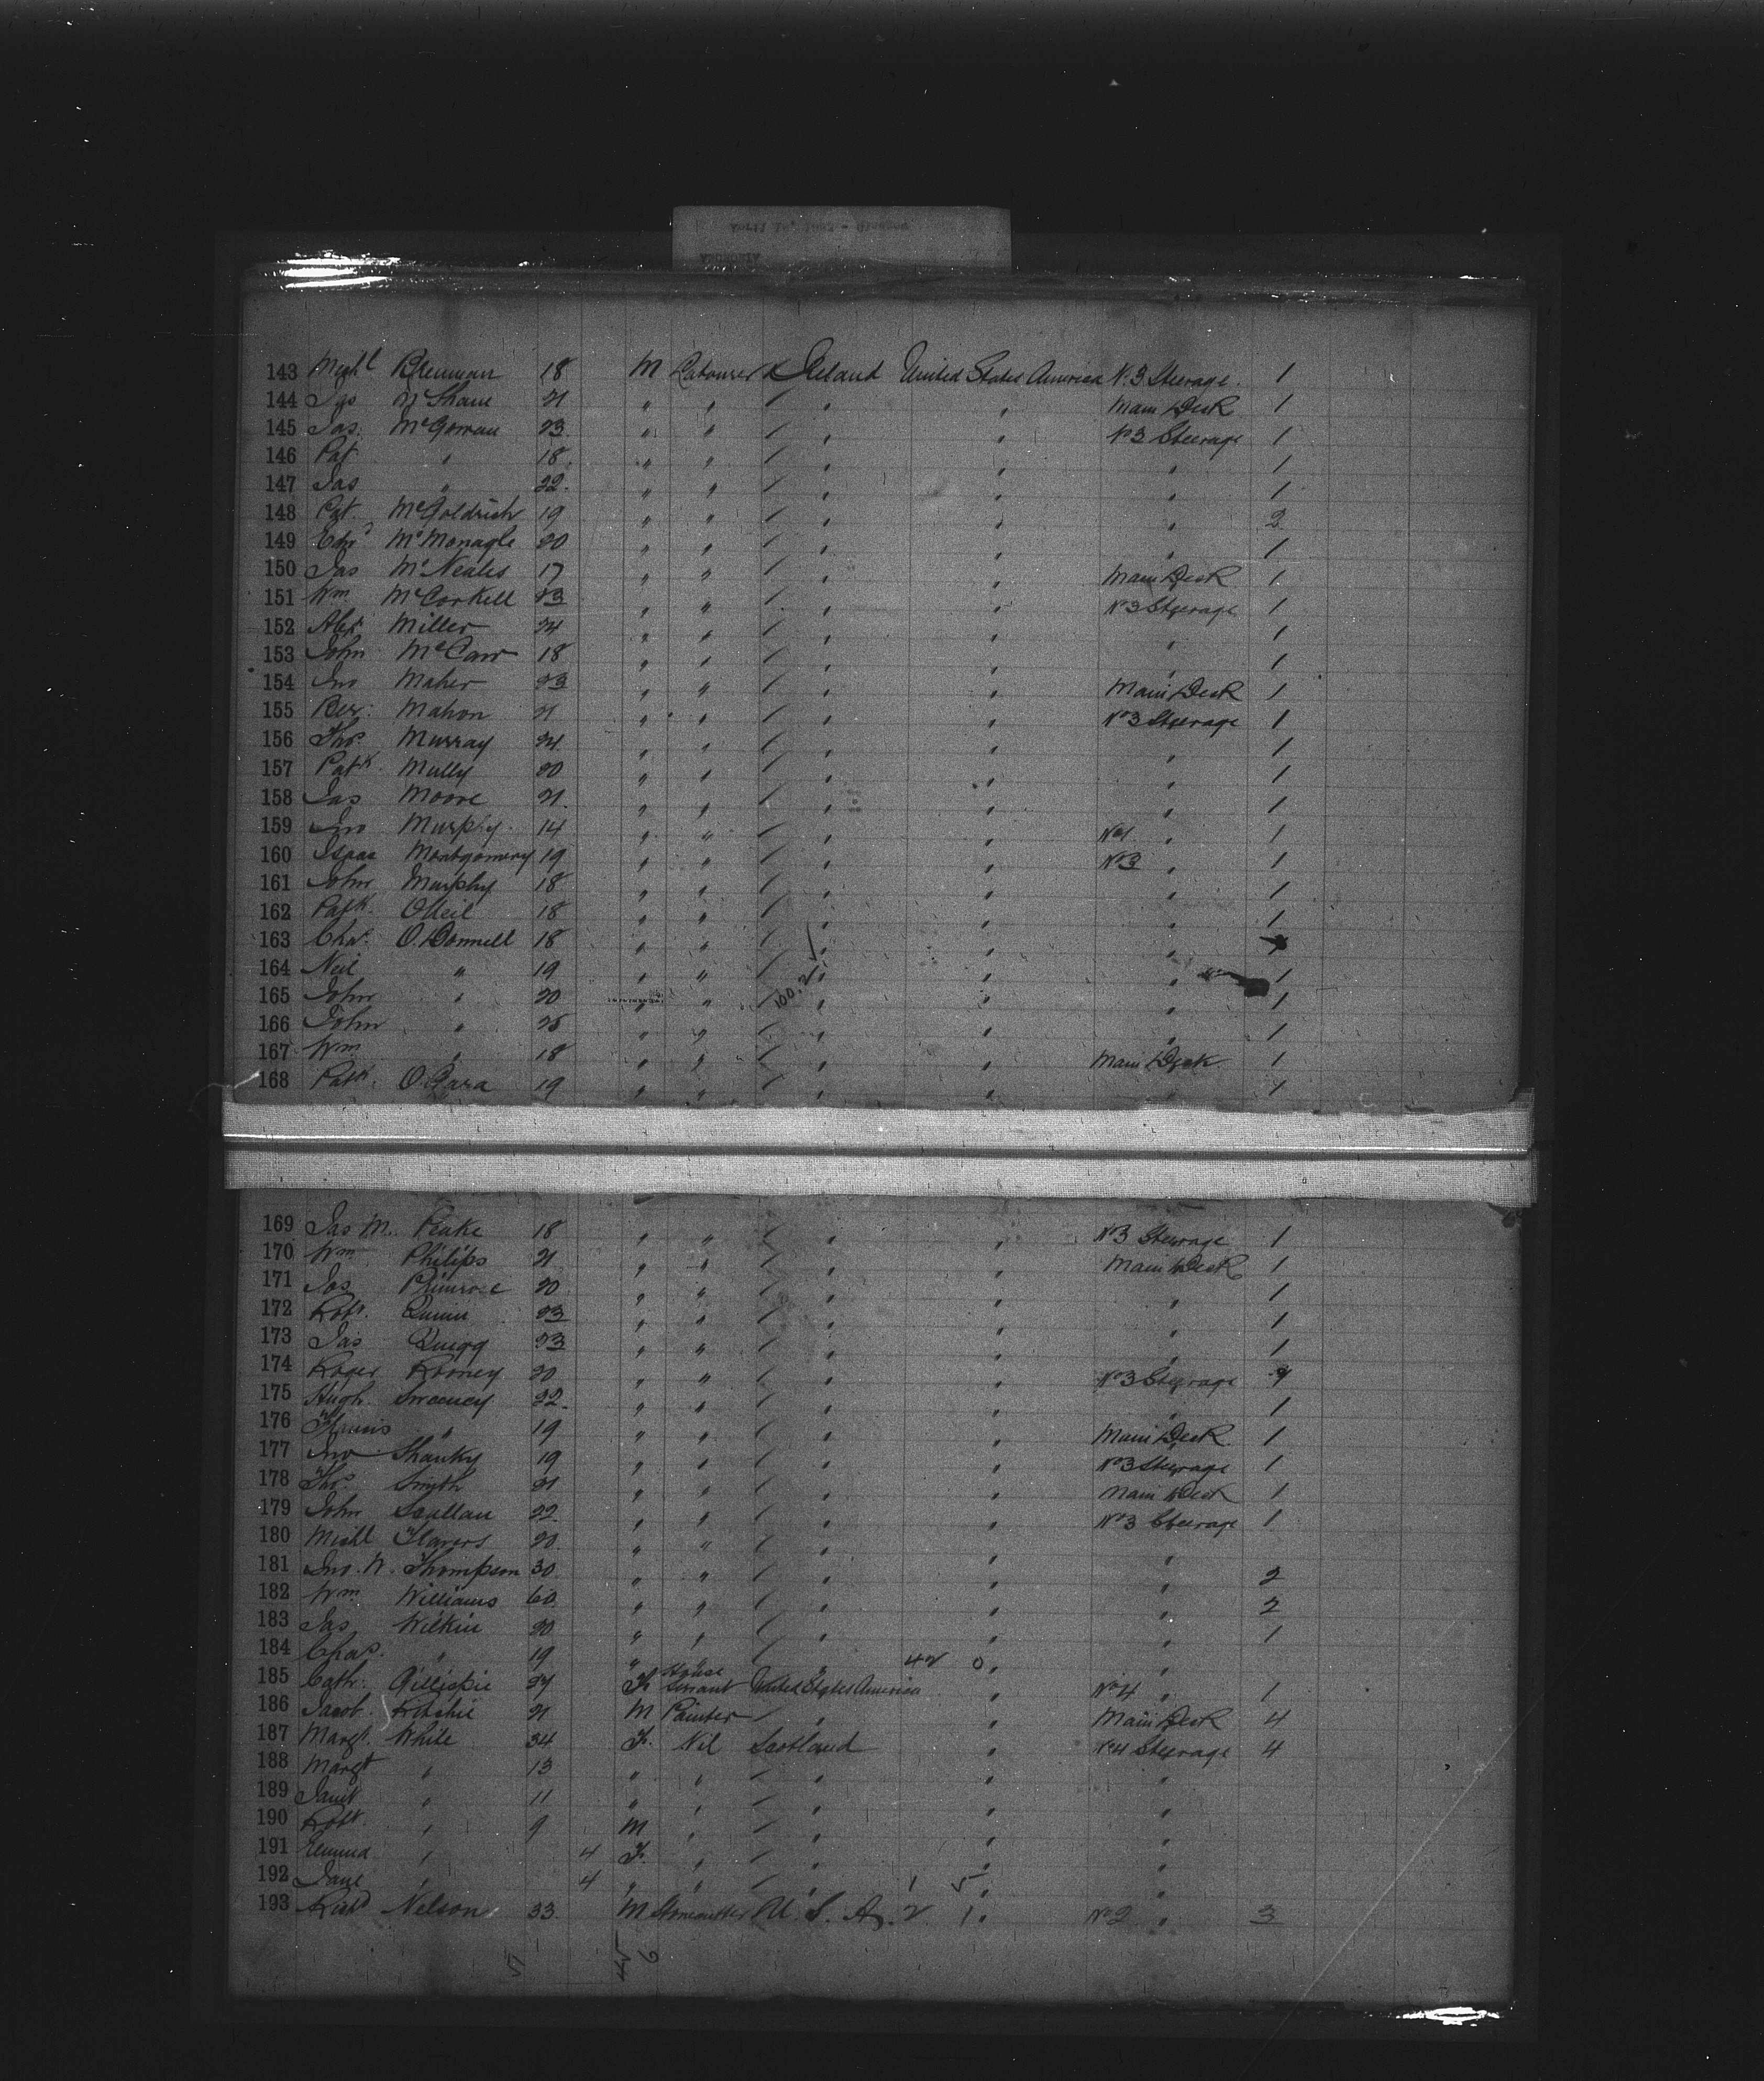 143 Michl Brennan 18 M Labourer Ireland United States America No. 3 Steerage. 1
144 Jas McShane 21 " " / " " Main Deck 1
145 Jas. McGowan 23 " " / " " No 3 Steerage 1
146 Pat " 18 " " / " " " 1
147 Jas " 22 " " / " " " 1
148 Pat. McGoldrich 19 " " / " " " 2
149 Edwd McMonagle 20 " " / " " " 1
150 Jas McNeales 17 " " / " " Main Deck 1
151 Wm McCorkell 23 " " / " " No 3 Steerage 1
152 Alex Miller 24 " " / " " " 1
153 John McCaw 18 " " / " " " 1
154 Jno Maher 23 " " / " " Main Deck 1
155 Mahon 21 " " / " " No 3 Steerage 1
156 Thos Murray 24 " " / " " " 1
157 Patk Mully 20 " " / " " " 1
158 Jas Moore 21 " " / " " " 1
159 Jno Murphy 14 " " / " " No 1 " 1
160 Isaac Montgomery 19 " " / " " No 3 " 1
161 John Murphy 18 " " / " " " 1
162 Patk. ONeil 18 " " / " " " 1
163 Chas. O.Donnell 18 " " / " " "
164 Neil " 19 " " / " " " 1
165 John " 20 " " / " " " 1
166 John " 25 " " / " " " 1
167 Wm " 18 " " / " " Main Deck 1
168 Patk. O.Gara 19 " " / " " " 1
169 Jas M. Peake 18 " " / " " No 3 Steerage 1
170 Wm Philips 21 " " / " " Main Deck 1
171 Jas Primrose 20 " " / " " " 1
172 Robt. Quinn 23 " " / " " " 1
173 Jas Quigg 23 " " / " " " 1
174 Roger Rooney 20 " " / " " No 3 Steerage
175 Hugh Sweeney 22 " " / " " " 1
176 " 19 " " / " " Main Deck 1
177 Jno Shanky 19 " " / " " No 3 Steerage 1
178 Thos Smyth 21 " " / " " Main Deck 1
179 John Scullan 22 " " / " " No 3 Steerage 1
180 Michl 20 " " / " " "
181 Jno. N. Thompson 30 " " / " " " 2
182 Wm Williams 60 " " / " " " 2
183 Jas Wilkin 20 " " / " " " 1
184 Chas. " 19 " " / " 42 0 " "
185 Cath. Gillispie 27 F. House Servant United States America " No 4 " 1
186 Jacob Ritchie 21 M Painter / " " Main Deck 4
187 Margt. White 34 F. Nil Scotland " No 4 Steerage 4
188 Margt " 13 " " / " " "
189 Janet " 11 " " / " " "
190 Robt " 9 M " / " " "
191 " 4 F. " / " " "
192 Jane " 4 " " / " 1 5 " "
193 Richd Nelson 33 M Stonecutter U. S. A. 2 1 " No 2 " 3